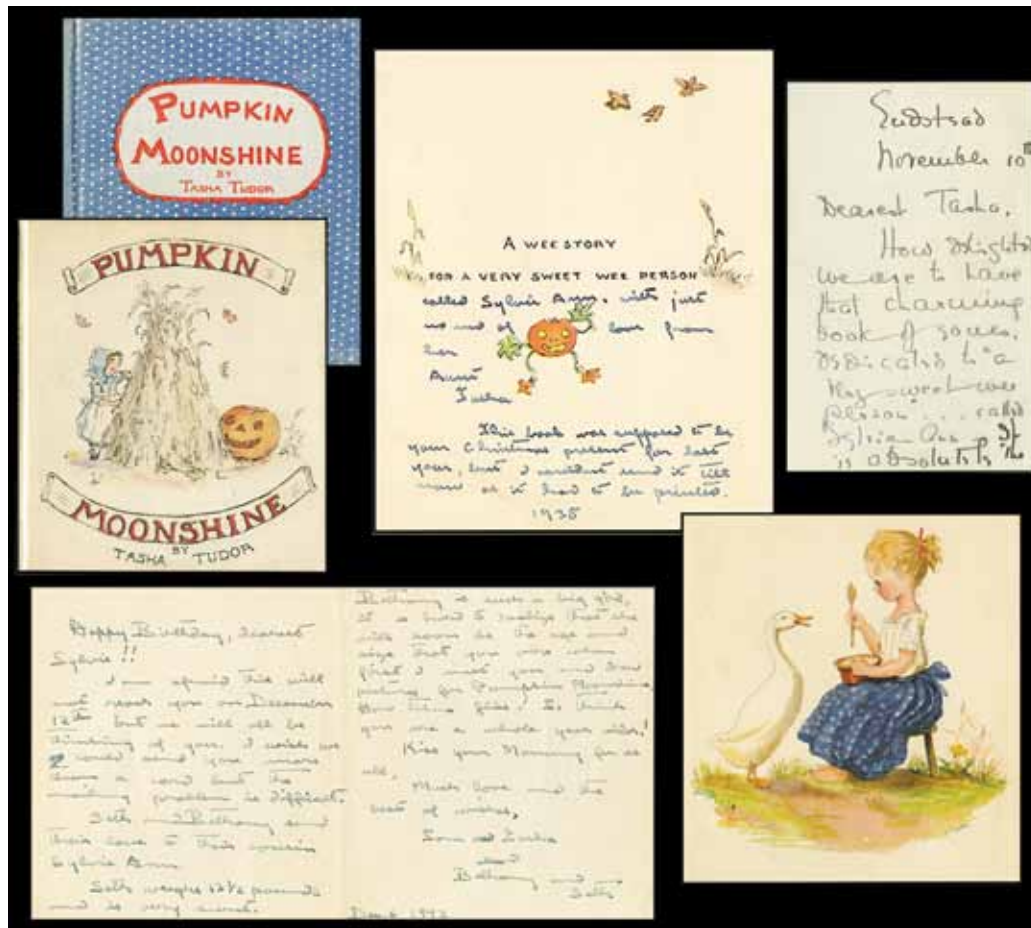 PUMPKIN
MOONSHINE
BY
TASHA TUDOR
PUMPKIN
MOONSHINE
BY
TASHA TUDOR
A WEE STORY
FOR A VERY SWEET WEE PERSON
called Sylvie Ann, with just
no end of love from
her
Aunt
Tasha
This book was supposed to be
your Christmas present for last
year, but I couldn't send it till
now as it had to be printed.
1938
November 10th
Dearest Tasha,
How delighted
we are to have
that charming
book of yours,
dedicated to "a
very sweet wee
person"... called
Sylvie Ann
is absolutely the
Happy Birthday, dearest
Sylvie!!
I am afraid this will
not reach you on December
12th but we will all be
thinking of you. I wish we
could send you more
than a card but the
mailing problem is difficult.
Seth and Bethany send
their love to their cousin
Sylvie Ann.
Seth weighs 12½ pounds
and is very sweet.
Bethany is such a big girl,
it is hard to realize that she
will soon be the age and
size that you were when
first I met you and drew
pictures for Pumpkin Moonshine.
How time flies, to think
you are a whole year older!
Kiss your Mummy for us
all.
Much love and the
best of wishes,
Tom and Tasha
and
Bethany and
Seth